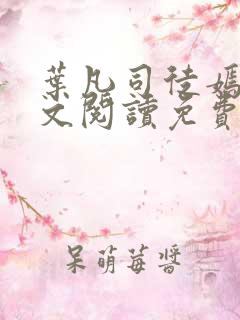 葉凡司徒嫣
文閱讀免費
呆萌莓醬